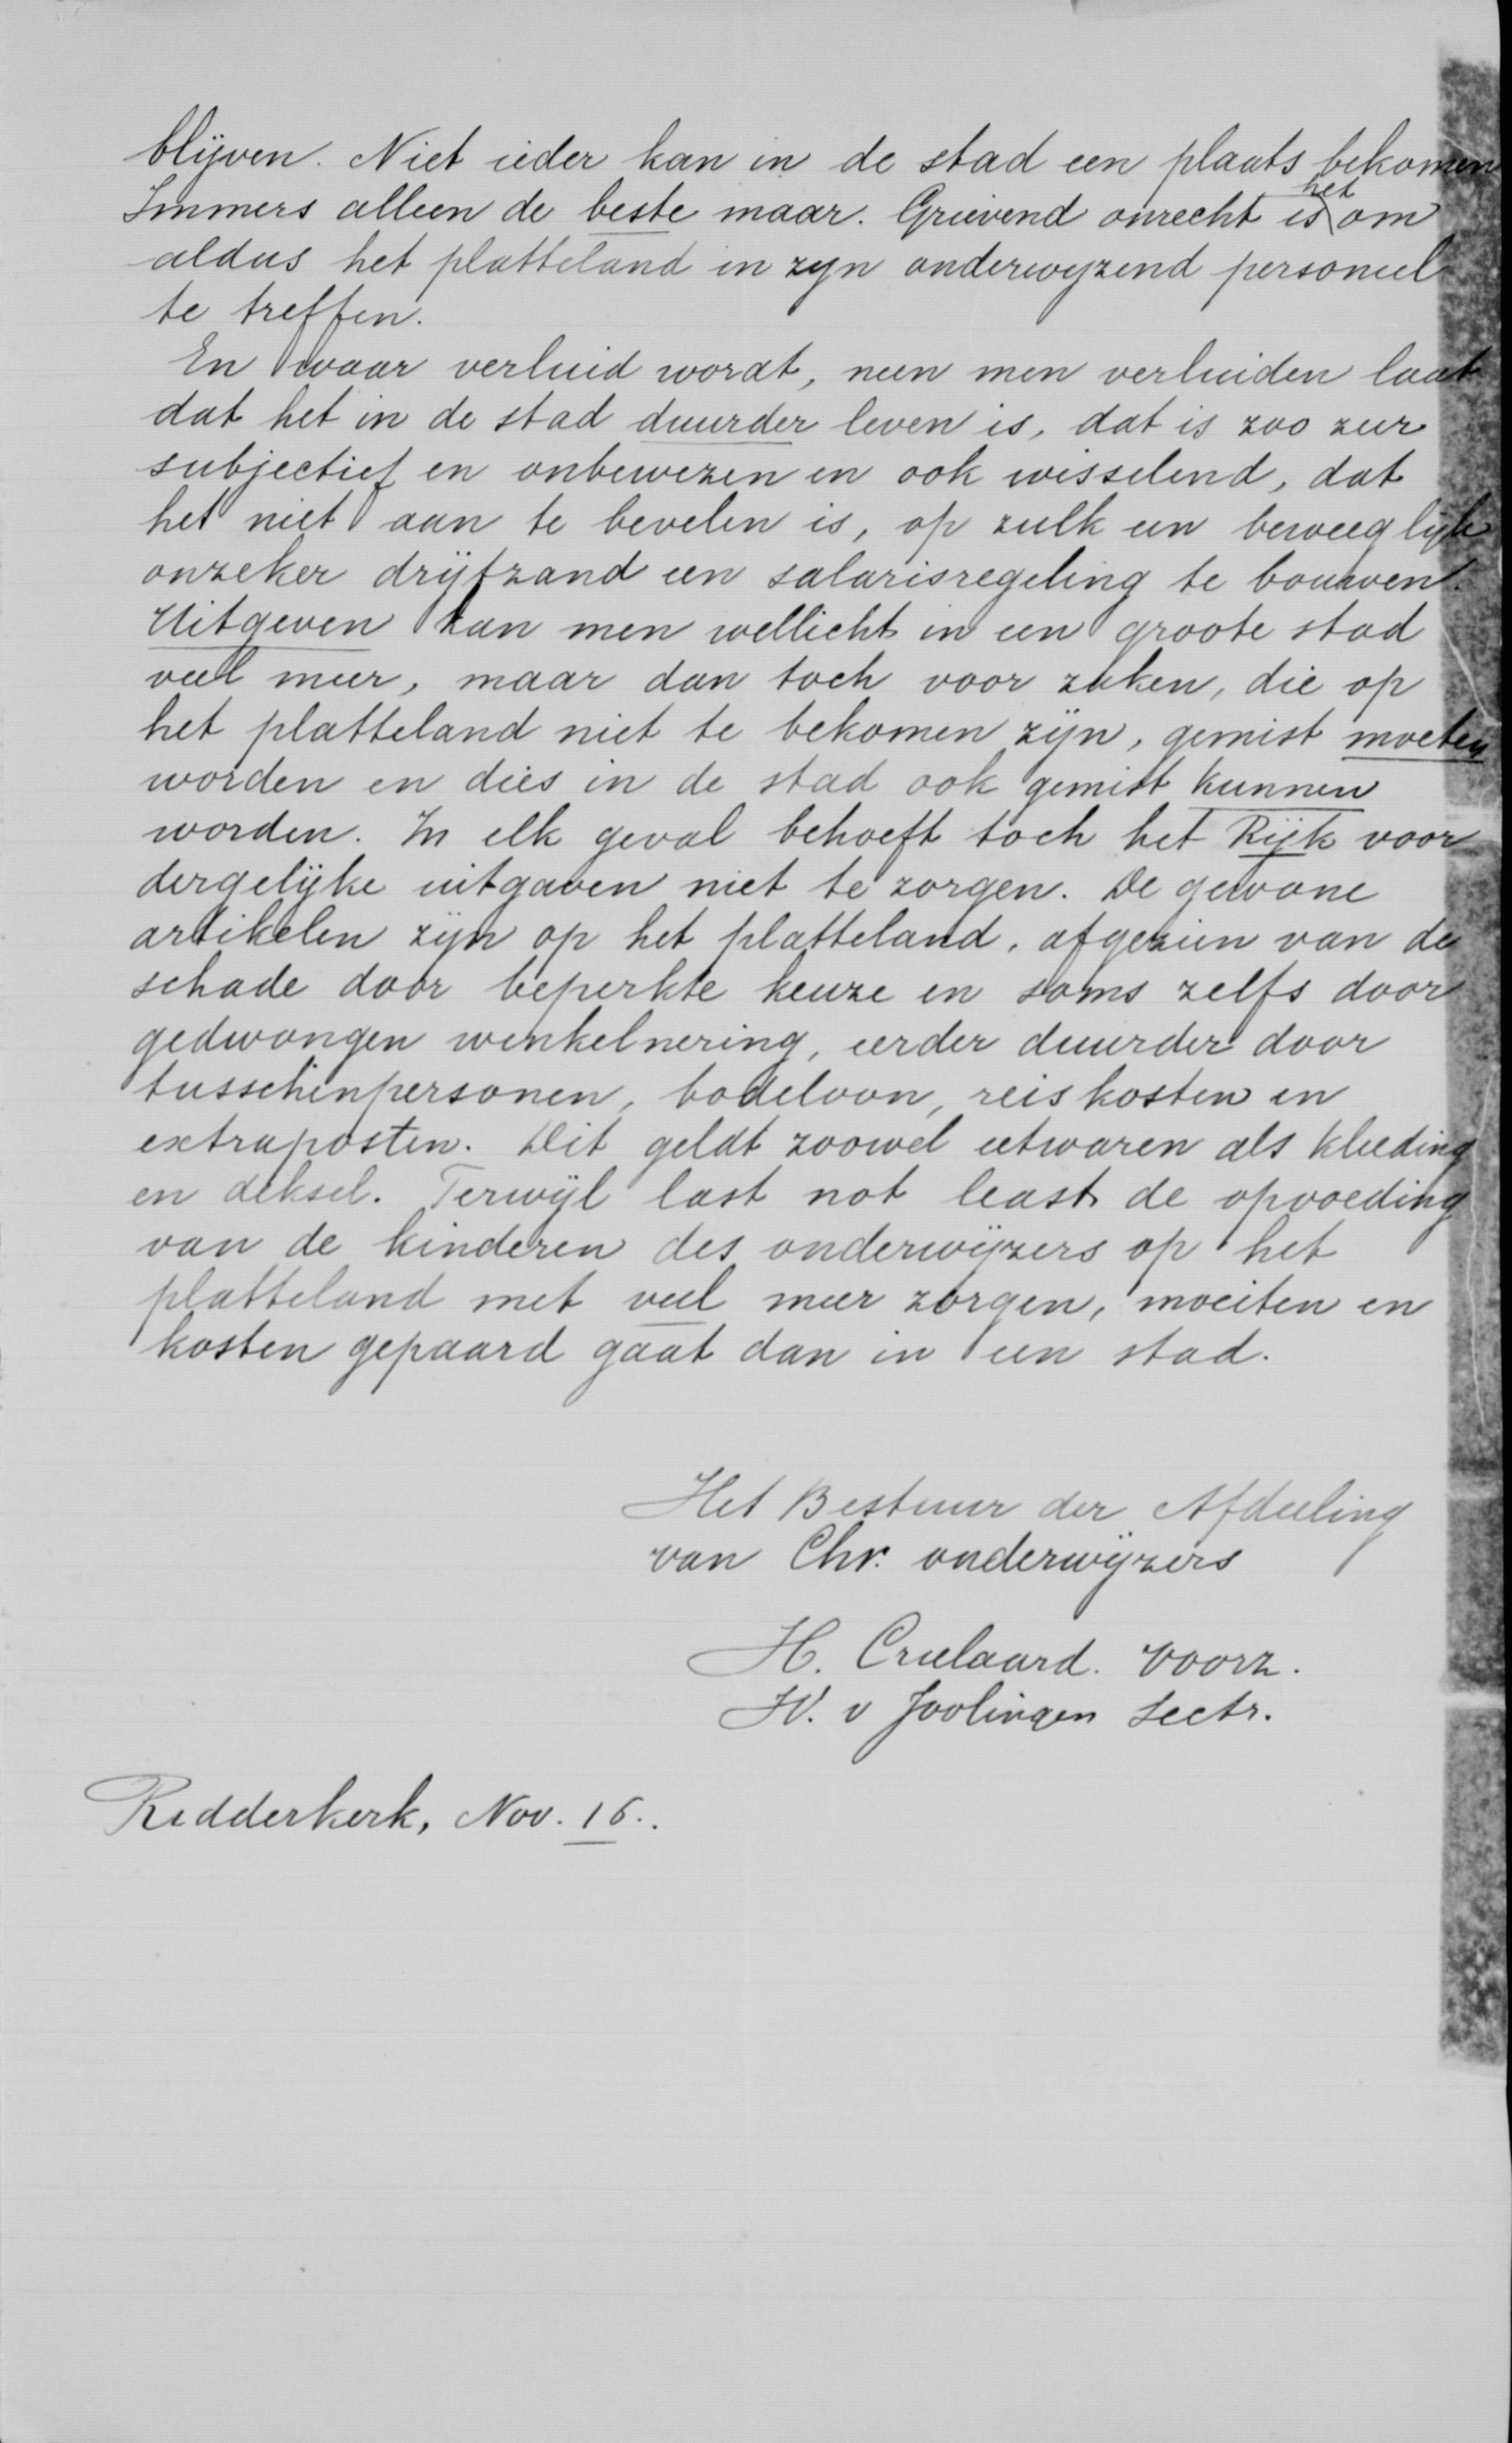 blijven. Niet ieder kan in de stad een plaats bekomen
Immers alleen de beste maar. Grievend onrecht is het om
aldus het platteland in zijn onderwijzend personeel
te treffen.
En waar verluid wordt, neen men verluiden laat
dat het in de stad duurder leven is, dat is zoo zeer
subjectief en onbewezen en ook wisselend, dat
het niet aan te bevelen is, op zulk een beweeglijk
onzeker drijfzand een salarisregeling te bouwen.
Uitgeven kan men wellicht in een groote stad
veel meer, maar dan toch voor zaken, die op
het platteland niet te bekomen zijn, gemist moeten
worden en dies in de stad ook gemist kunnen
worden. In elk geval behoeft toch het Rijk voor
dergelijke uitgaven niet te zorgen. De gewone
artikelen zijn op het platteland, afgezien van de
schade door beperkte keuze en soms zelfs door
gedwongen winkelnering, eerder duurder door
tusschenpersonen, bodeloon, reiskosten en
extraposten. Dit geldt zoowel eetwaren als kleeding
en deksel. Terwijl last not least de opvoeding
van de kinderen des onderwijzers op het
platteland met veel meer zorgen, moeiten en
kosten gepaard gaat dan in een stad.
Het Bestuur der Afdeeling
van Chr. onderwijzers
H. Crielaard. Voorz.
W. v Joolingen Sectr.
Ridderkerk, Nov. 16.